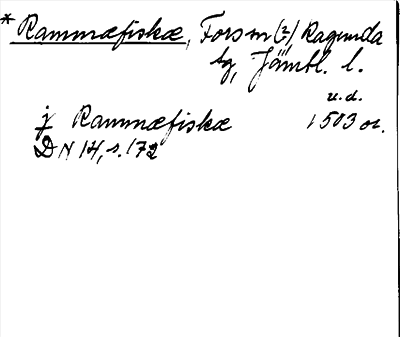 * Rammæfiskæ, Fors sn (?), Ragunda
tg, Jämtl. l.
u.d.
j Rammæfiskæ 1503 or.
DN 14, s. 172